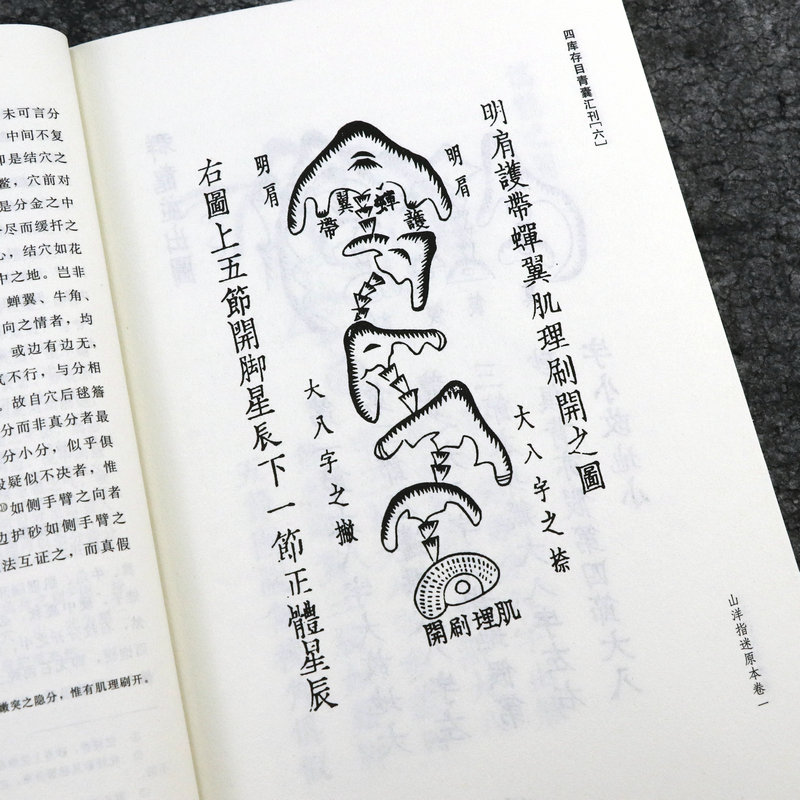 未可言分
中间不复
即是结穴之
鳌，穴前对
是分金之中
尽而缓扦之
心，结穴如花
中之地。岂非
蝉翼、牛角、
向之情者，均
或边有边无，
气不行，与分相
。故自穴后毬簷
分而非真分者最
分小分，似乎俱
疑似不决者，惟
如侧手臂之向者
边护砂如侧手臂之
法互证之，而真假
嫩突之隐分，惟有肌理刷开。
四库存目青囊汇刊[六]
明肩護帶蟬翼肌理刷開之圖
明肩
明肩
護
蟬
翼
帶
大八字之捺
大八字之撇
肌理刷開
右圖上五節開脚星辰下一節正體星辰
山洋指迷原本卷一